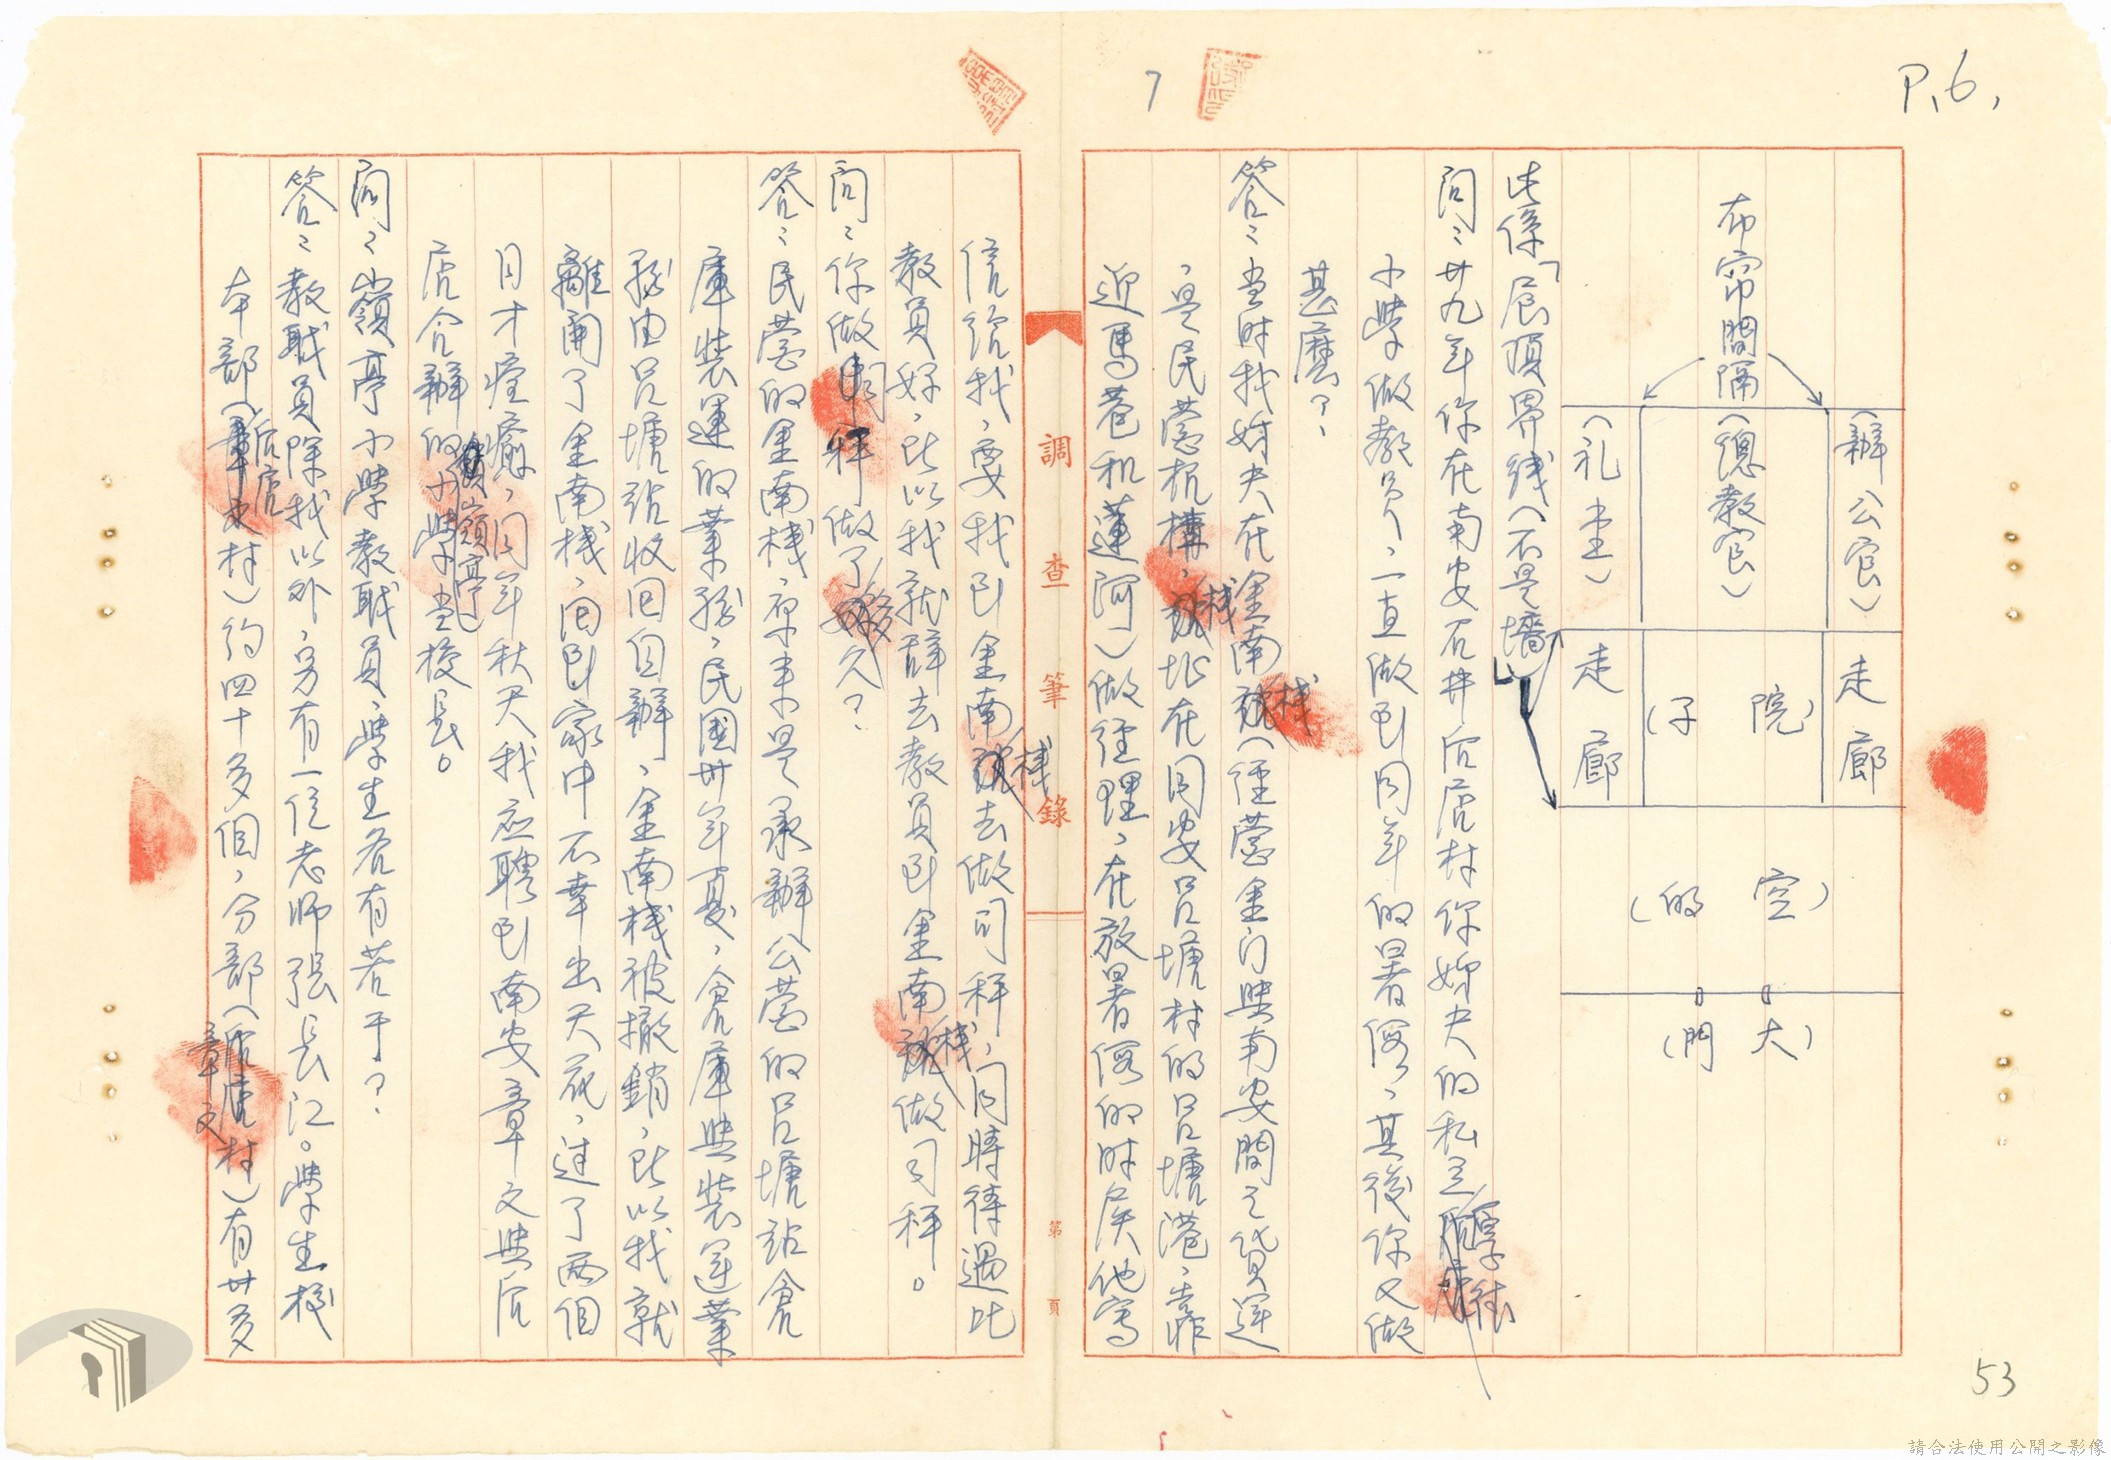 P.6,
7
布帘間隔
(辦公官)
(總教官)
(礼堂)
走廊
(院子)
走廊
(空的)
(大門)
此係「辰頂界线(不是墻)」
問:廿九年你在南安石井后店村你姊夫的私立厚德
小學做教員,一直做到同年的暑假,其後你又做
甚麼?
答:当时我姊夫在金南栈(經營金门與南安間之貨運
,是民營机構,栈址在同安吕塘村的吕塘港,靠
近馬巷和蓮河)做經理,在放暑假的时侯他寫
調查筆錄
第頁
信給我,要我到金南栈去做司秤,同時待遇比
教員好,所以我就辞去教員到金南栈做司秤。
問:你做司秤做了多久?
答:民營的金南栈,原来是承辦公營的吕塘站倉
庫裝運的業務,民國卅年夏,倉庫與裝運業
務由吕塘站收回自辦,金南栈被撤銷,所以我就
離開了金南栈,回到家中不幸出天花,过了两個
月才痊癒,同年秋天我应聘到南安章文與后
店合辦的嶺亭小學当校長。
問:嶺亭小學教职員,學生各有若干?
答:教职員除我以外,另有一位老师張長江。學生校
本部(后店村)约四十多個,分部(章文村)有廿多
53
請合法使用公開之影像